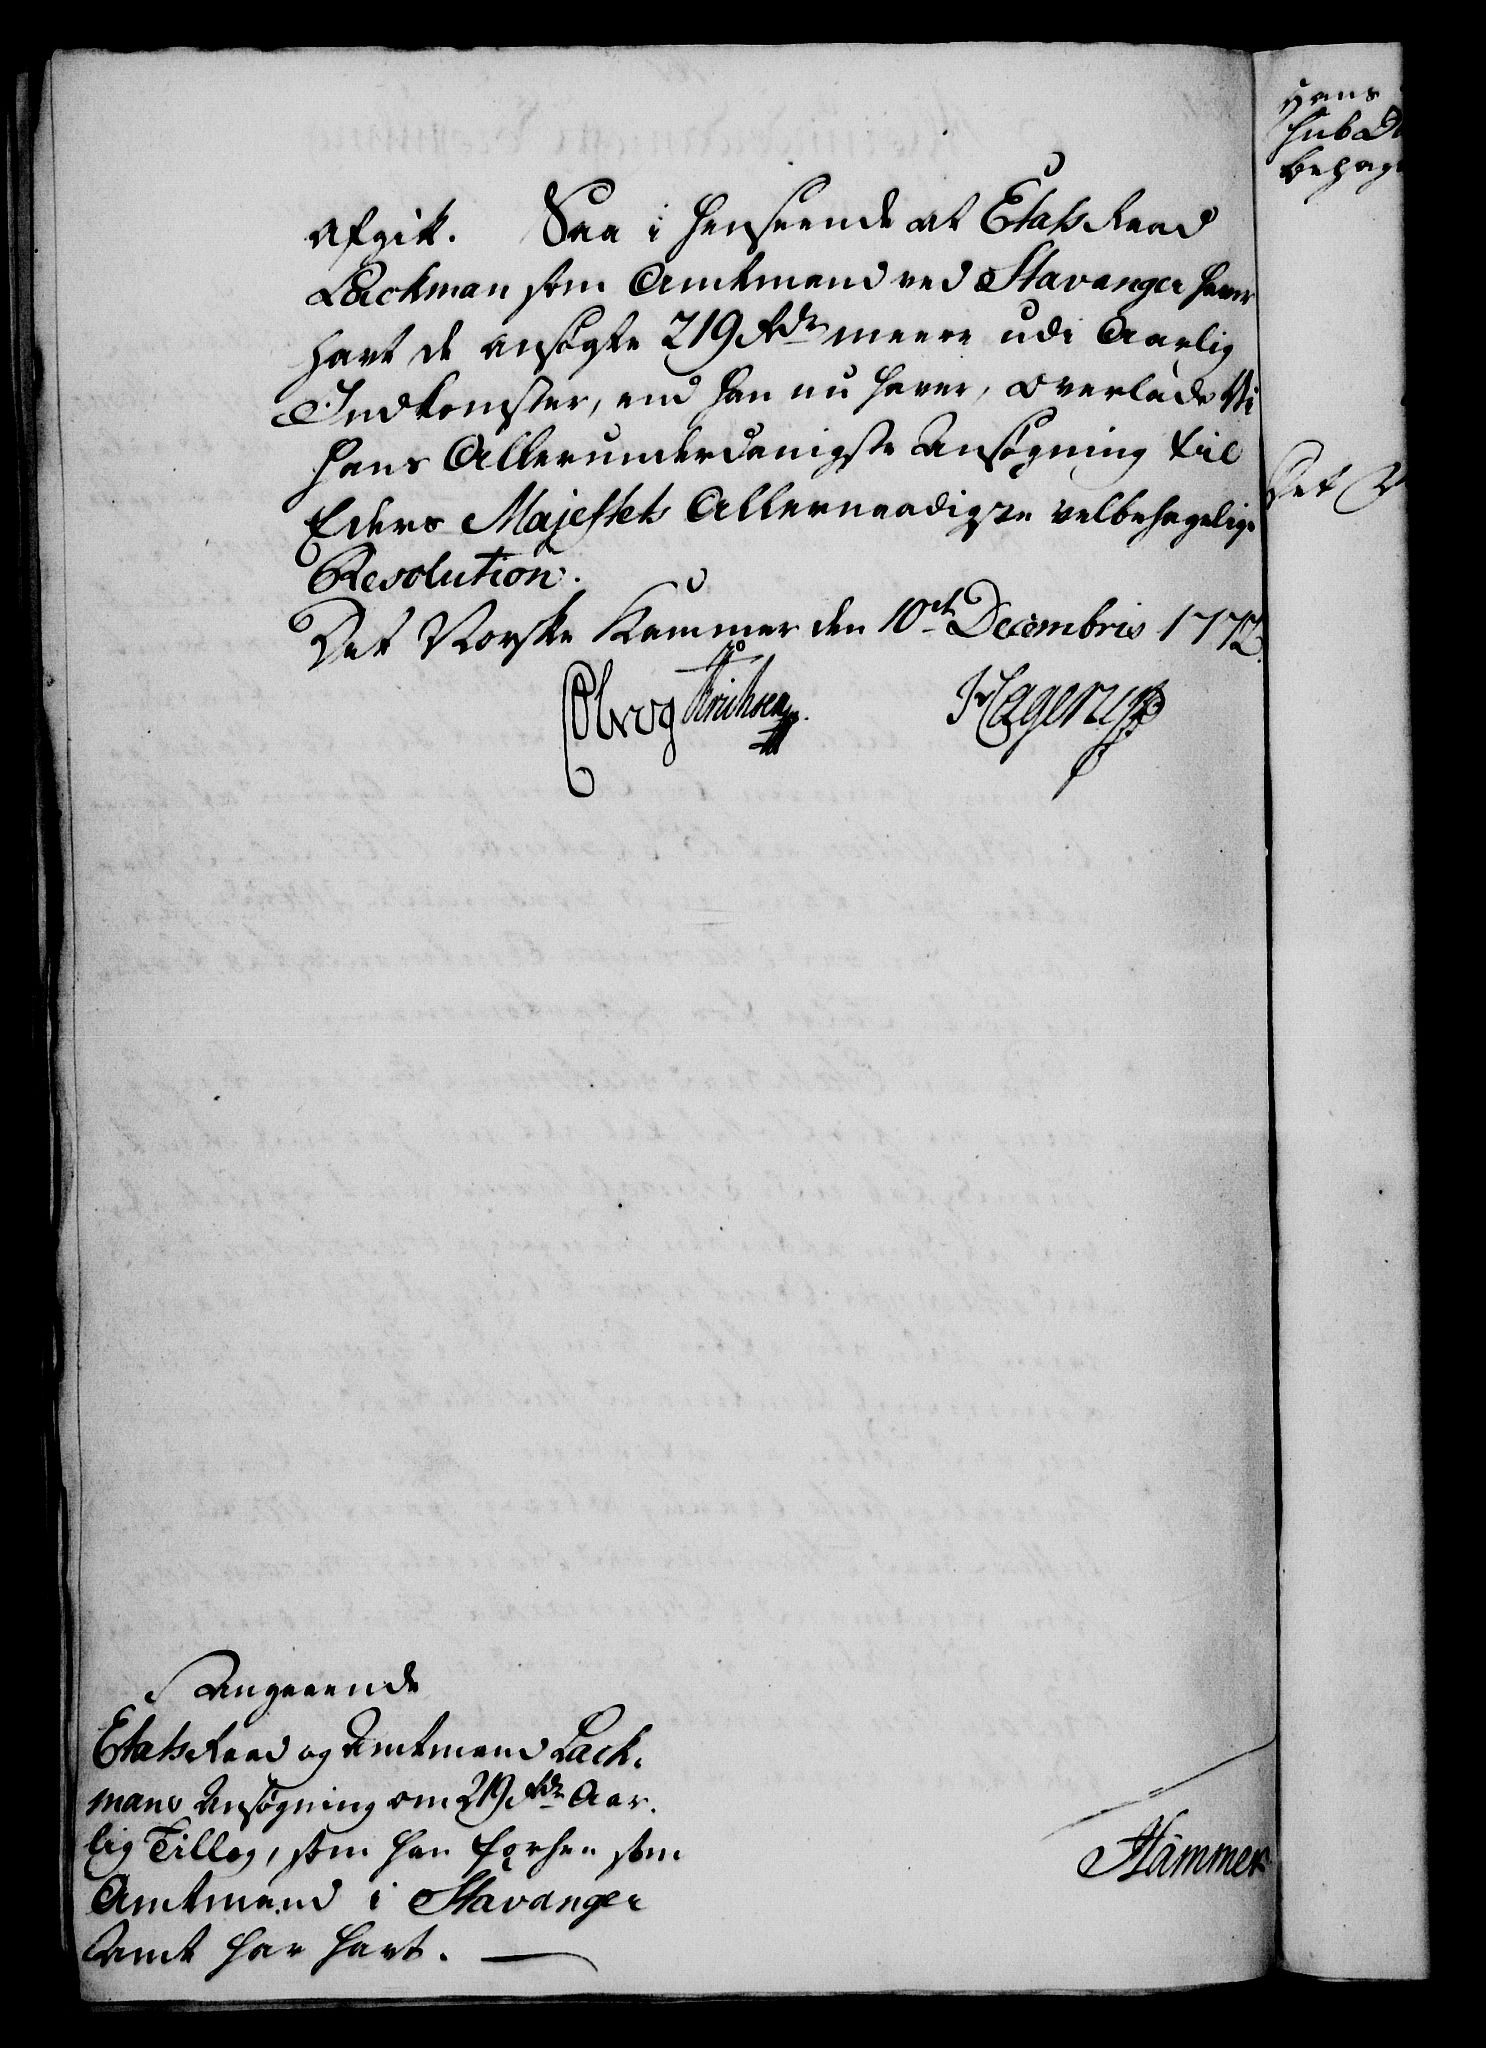 afgik. Saa i Henseende at Etats Raad
Lackman som Amtmand ved Stavanger haver
havt de ansøgte 219 Rdr meere udi Aarlig
Indkomster, end han nu haver, overlade Vi
hans Allerunderdanigste Ansøgning til
Eders Majestets Allernaadigste velbehagelige
Resolution.
Det Norske Kammer den 10de Decembris 1772.
Erichsen Hagerup
Angaaende
Etats Raad og Amtmand Lack-
mans Ansøgning om 219 Rdr Aar-
lig Tillæg, som han forhen som
Amtmand i Stavanger
Amt har havt.
Hammer
Hans
Det